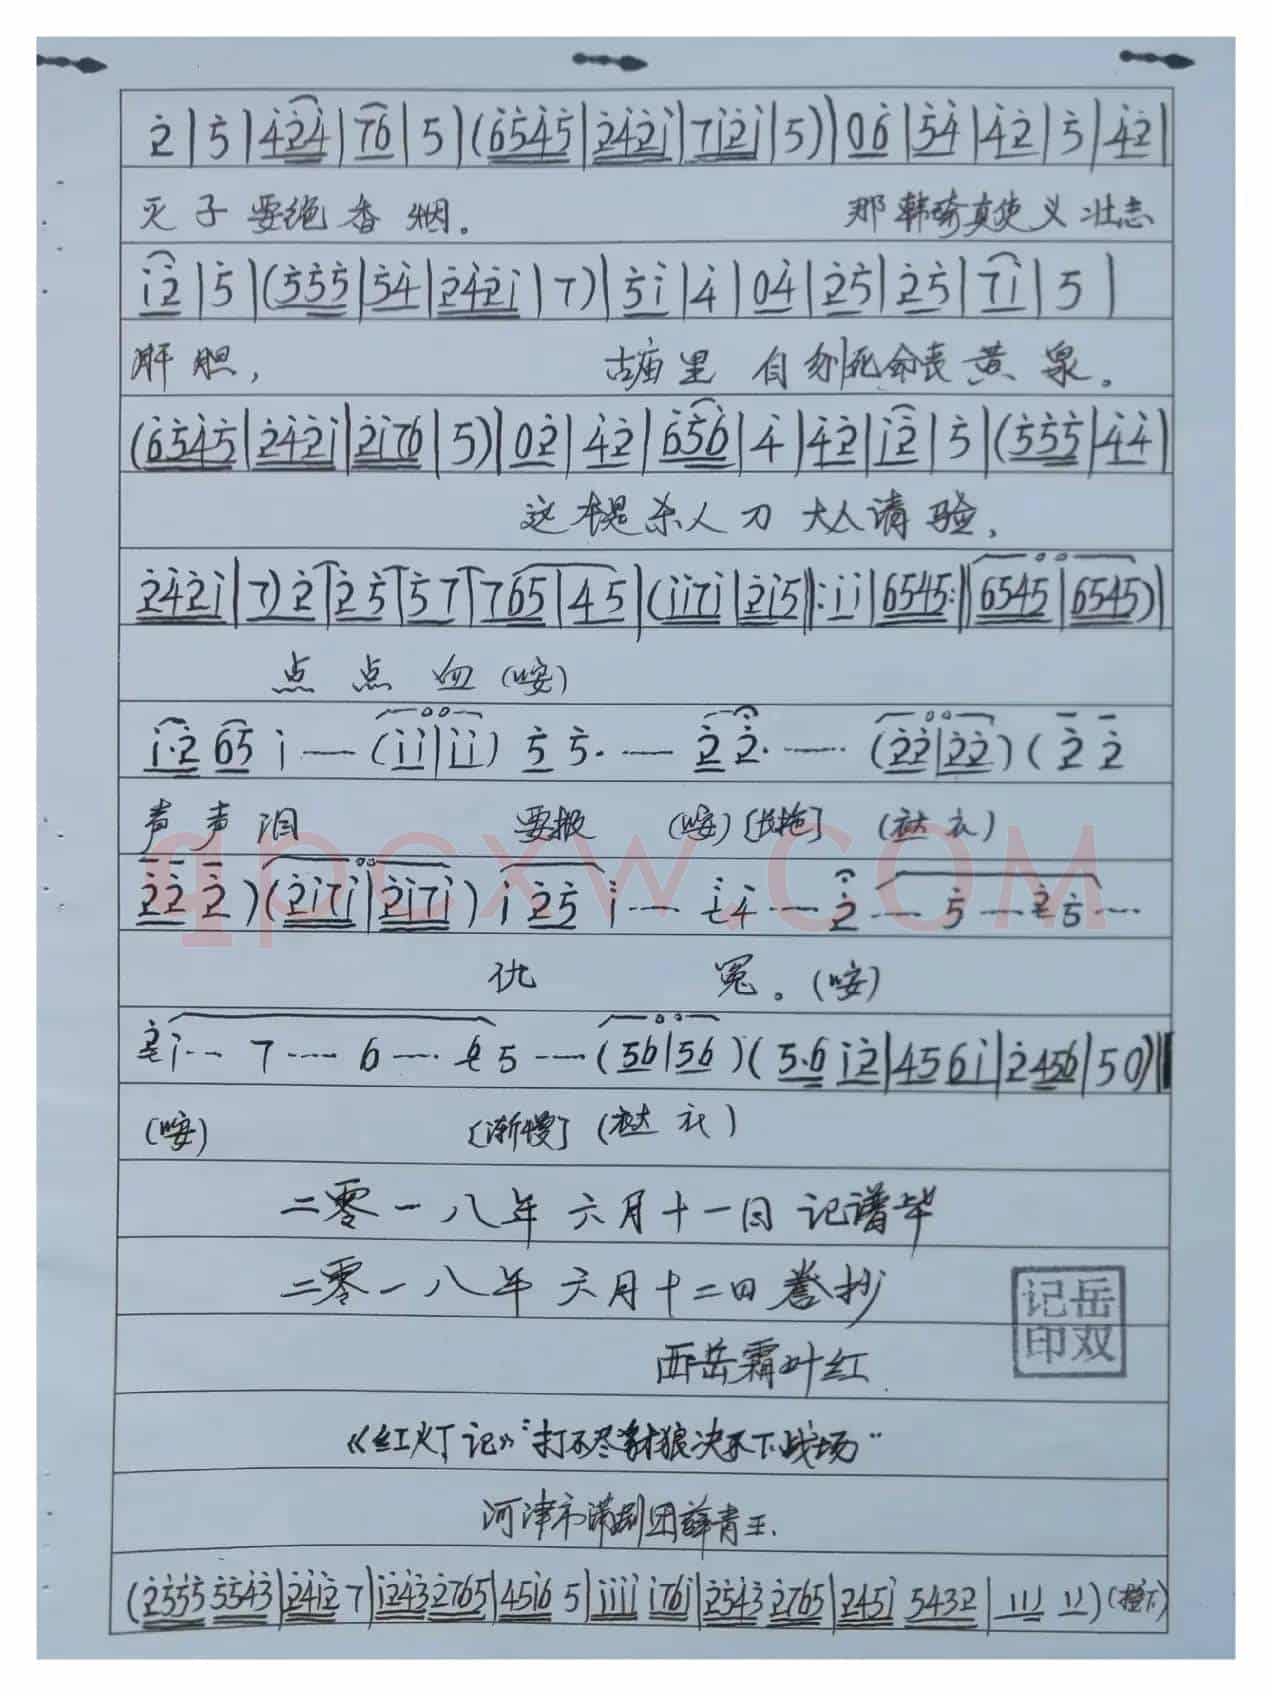 2 | 5 | 424 | 76 | 5 | (6545 | 2421 | 7121 | 5) | 06 | 54 | 42 | 5 | 42 |
灭子要绝香烟。 那韩琦真使义壮志
12 | 5 | (555 | 54 | 2421 | 7) | 51 | 4 | 04 | 25 | 25 | 71 | 5 |
肝胆, 古庙里自刎死命丧黄泉。
(6545 | 2421 | 2176 | 5) | 02 | 42 | 656 | 4 | 42 | 12 | 5 | (555 | 44 |
这本是杀人刀大人请验,
2421 | 7) 2 | 25 | 57 | 765 | 45 | (1171 | 215 ‖: 11 | 6545 :‖ 6545 | 6545) |
点点血(咹)
1·2 65 1 — (11 | 11) 5 5· — 2 2· — (22 | 22) (2 2
声声泪 要报 (咹)[长拖] (袪衣)
22 2) (2171 | 2171) 1 25 1 — 1 4 — 2 — 5 — 2 5 —
仇 冤。(咹)
2 1 — 7 — 6 — 6 5 — (56 | 56) (5·6 12 | 45 61 | 2 456 | 50) ‖
(咹) [渐慢] (袪衣)
二零一八年六月十一日记谱毕
二零一八年六月十二日誊抄
西岳霜叶红
记岳
印双
《红灯记》"打不尽豺狼决不下战场"
河津市蒲剧团薛青王.
(2555 5543 | 2412 7 | 1243 2765 | 4516 5 | 1111 1761 | 2543 2765 | 2451 5432 | 111 11) (接下)
qpcxw.COM